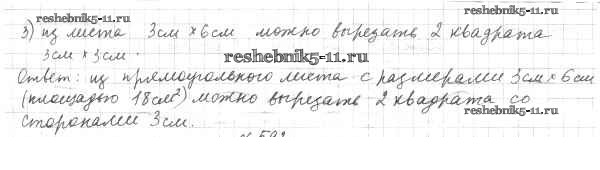 reshebnik5-11.ru
3) из листа 3см × 6см можно вырезать 2 квадрата
3см × 3см.
reshebnik5-11.ru
Ответ: из прямоугольного листа с размерами 3см × 6см
(площадью 18см²) можно вырезать 2 квадрата со
сторонами 3см.
reshebnik5-11.ru